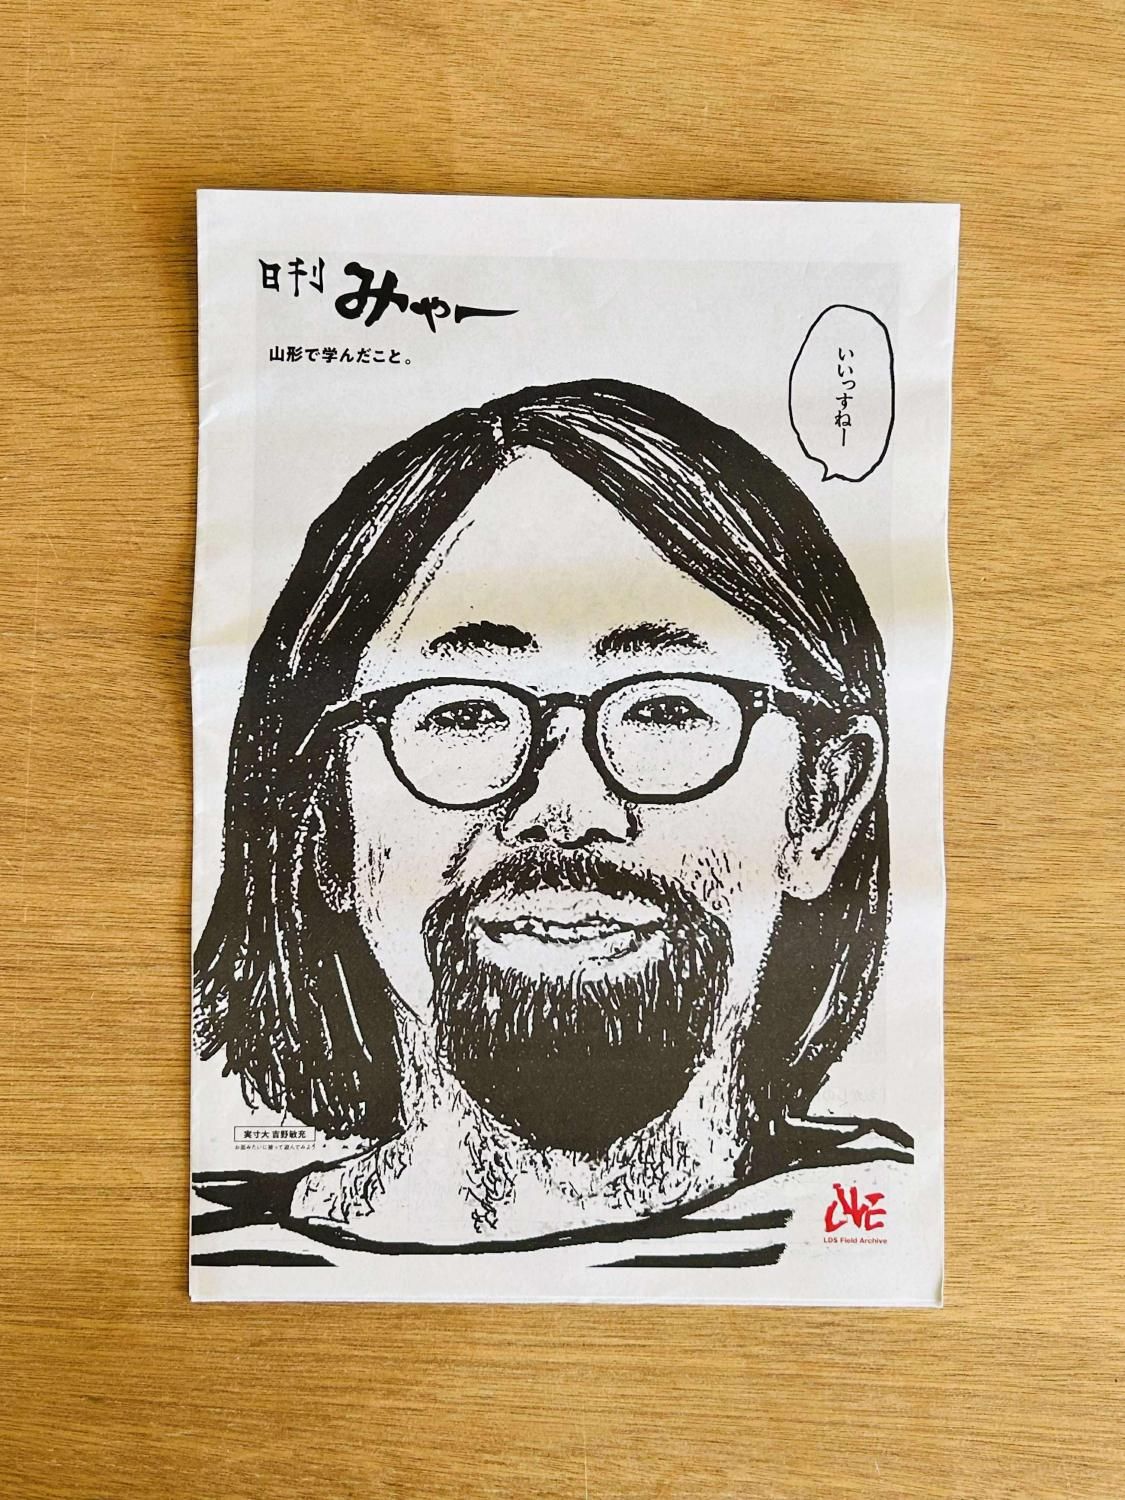 日刊 みゃー
山形で学んだこと。
いいっすねー
実寸大 吉野敏充
お面みたいに被って遊んでみよう
LIVE
LDS Field Archive